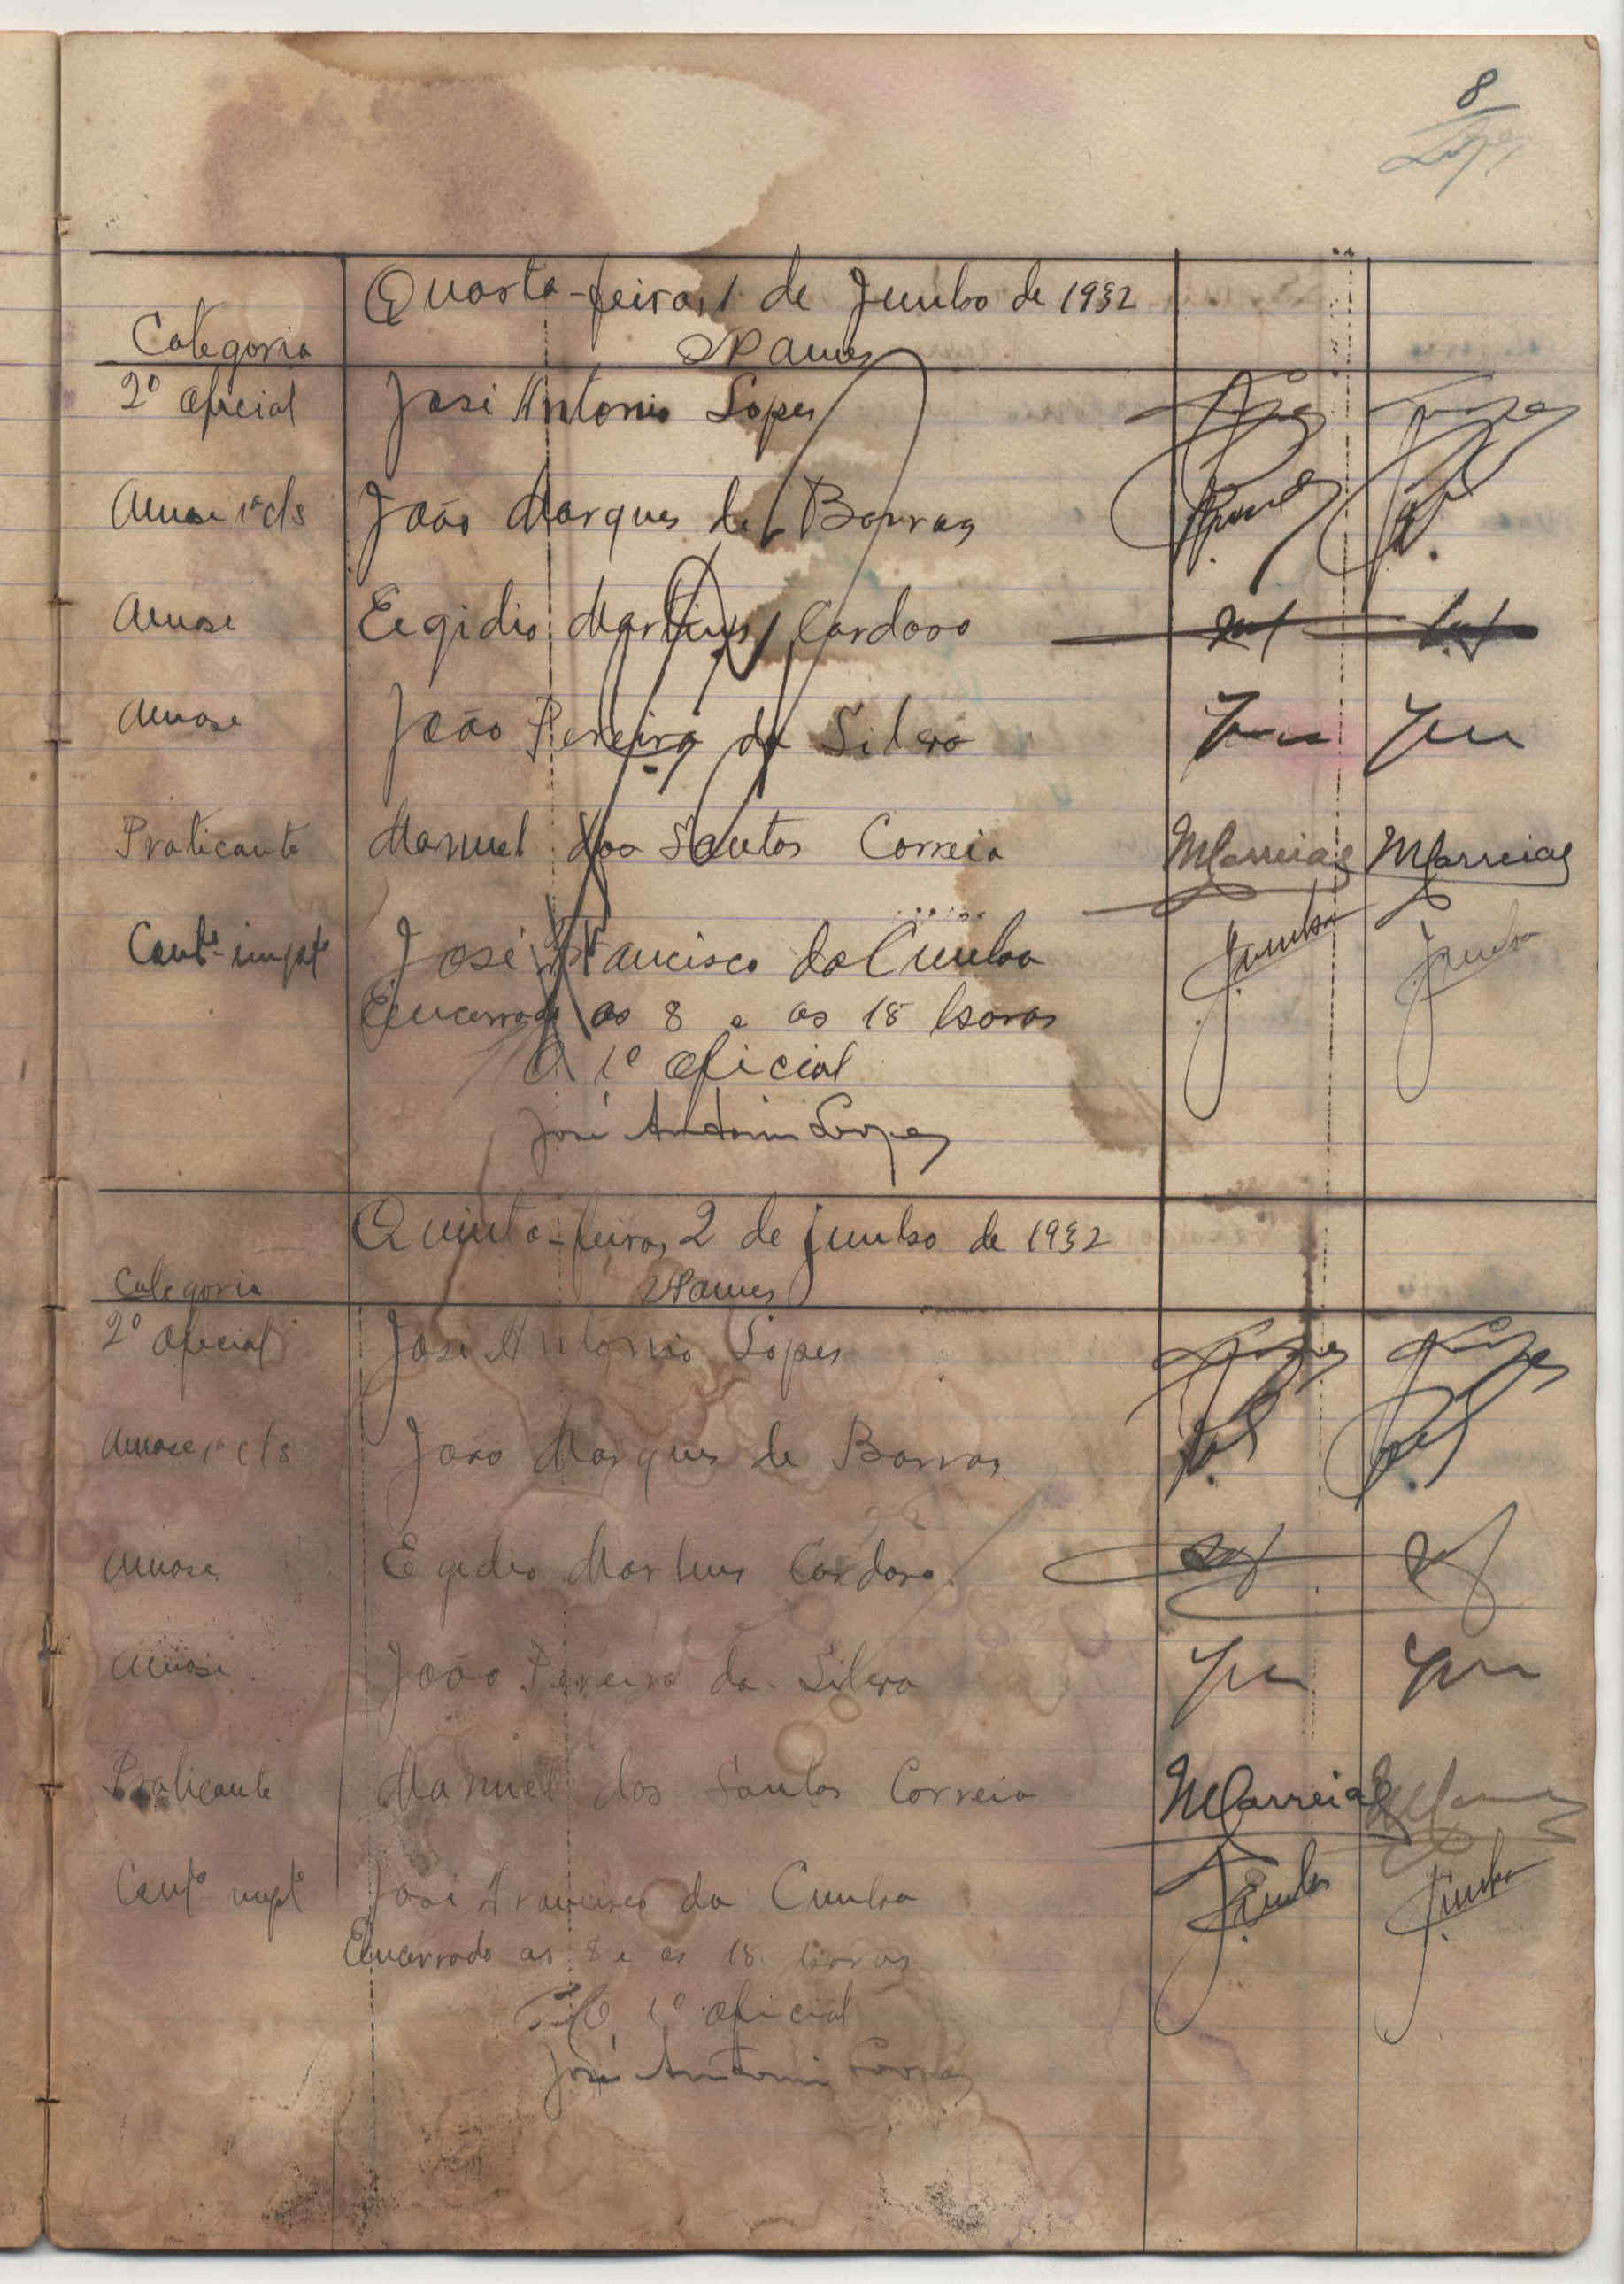 8
Lopes
Quarta-feira, 1 de Junho de 1932
Categoria Nomes
2º Oficial José Antonio Lopes Lopes Lopes
Amse 1ª cls João Marques de Barros
Amse Egidio Martins Cardoso
Amse João Pereira da Silva
Praticante Manuel dos Santos Correia MCorreia MCorreia
Contº impto José Francisco da Cunha JCunha JCunha
Encerrado as 8 e as 18 horas
O 1º Oficial
José Antonio Lopes
Quinta-feira, 2 de junho de 1932
Categoria Nomes
2º Oficial José Antonio Lopes Lopes Lopes
Amse 1ª cls João Marques de Barros
Amse Egidio Martins Cardoso
Amse João Pereira da Silva
Praticante Manuel dos Santos Correia MCorreia
Contº impto José Francisco da Cunha JCunha JCunha
Encerrado as 8 e as 18 horas
O 1º Oficial
José Antonio Lopes